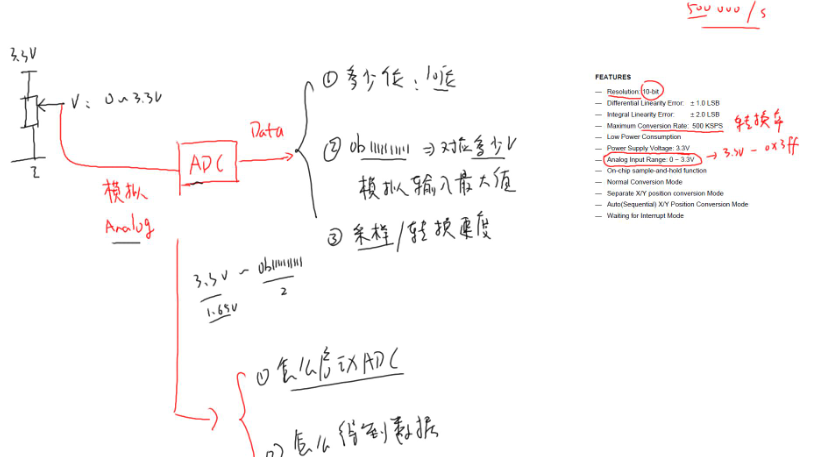 500 000 / s
3.3V
V: 0~3.3V
ADC
Data
模拟
Analog
① 多少位: 10位
② 0b1111111111 ⇒ 对应多少V
模拟输入最大值
③ 采样/转换速度
3.3V ~ 0b1111111111
1.65V
2
① 怎么启动ADC
② 怎么得到数据
FEATURES
— Resolution: 10-bit
— Differential Linearity Error: ± 1.0 LSB
— Integral Linearity Error: ± 2.0 LSB
— Maximum Conversion Rate: 500 KSPS 转换率
— Low Power Consumption
— Power Supply Voltage: 3.3V
— Analog Input Range: 0 ~ 3.3V → 3.3V - 0x3ff
— On-chip sample-and-hold function
— Normal Conversion Mode
— Separate X/Y position conversion Mode
— Auto(Sequential) X/Y Position Conversion Mode
— Waiting for Interrupt Mode